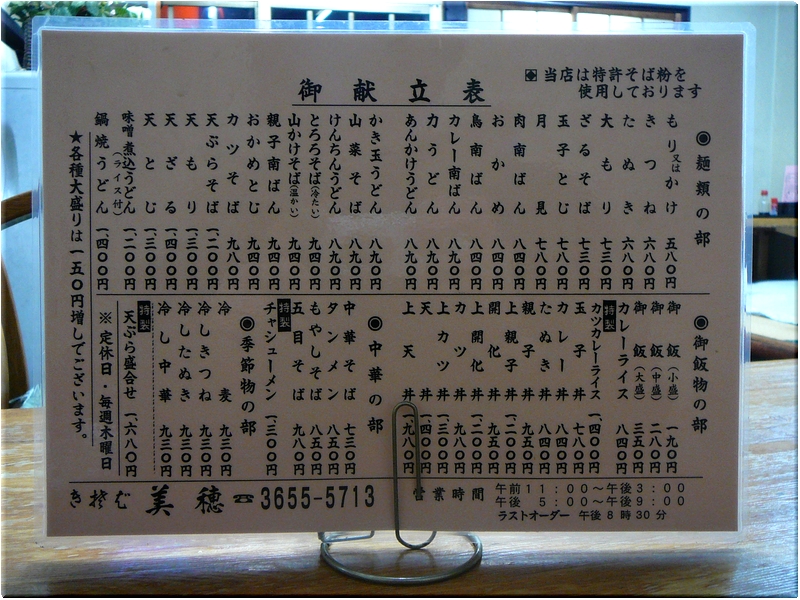 御献立表
当店は特許そば粉を
使用しております
◉麺類の部
もり又はかけ 五八〇円
きつね 六八〇円
たぬき 六八〇円
大もり 七三〇円
ざるそば 七三〇円
玉子とじ 七八〇円
月見 七八〇円
肉南ばん 八四〇円
おかめ 八四〇円
鳥南ばん 八四〇円
カレー南ばん 八九〇円
力うどん 八九〇円
あんかけうどん 八九〇円
かき玉うどん 八九〇円
山菜そば 八九〇円
けんちんうどん 八九〇円
とろろそば(冷たい) 九四〇円
山かけそば(温かい) 九四〇円
親子南ばん 九四〇円
おかめとじ 九四〇円
カツそば 九八〇円
天ぷらそば 一、二〇〇円
天もり 一、三〇〇円
天ざる 一、四〇〇円
天とじ 一、三〇〇円
味噌煮込うどん(ライス付) 一、二〇〇円
鍋焼うどん 一、四〇〇円
★各種大盛りは一五〇円増しでございます。
◉御飯物の部
御飯(小盛) 一九〇円
御飯(中盛) 二八〇円
御飯(大盛) 三五〇円
カレーライス 八四〇円
特製 カツカレーライス 一、四〇〇円
玉子丼 七八〇円
カレー丼 八四〇円
たぬき丼 八四〇円
親子丼 九五〇円
上親子丼 一、二〇〇円
開化丼 九五〇円
上開化丼 一、二〇〇円
カツ丼 九八〇円
上カツ丼 一、三〇〇円
天丼
上天丼 一、九八〇円
◉中華の部
中華そば 七三〇円
タンメン 八五〇円
もやしそば 八五〇円
五目そば 九八〇円
特製 チャシューメン 一、三〇〇円
◉季節物の部
冷麦 九三〇円
冷しきつね 九三〇円
冷したぬき 九三〇円
冷し中華 九三〇円
特製 天ぷら盛合せ 一、六八〇円
※定休日・毎週木曜日
きそば 美穂 ☎3655-5713
営業時間 午前11:00〜午後3:00
午後 5:00〜午後9:00
ラストオーダー 午後8時30分